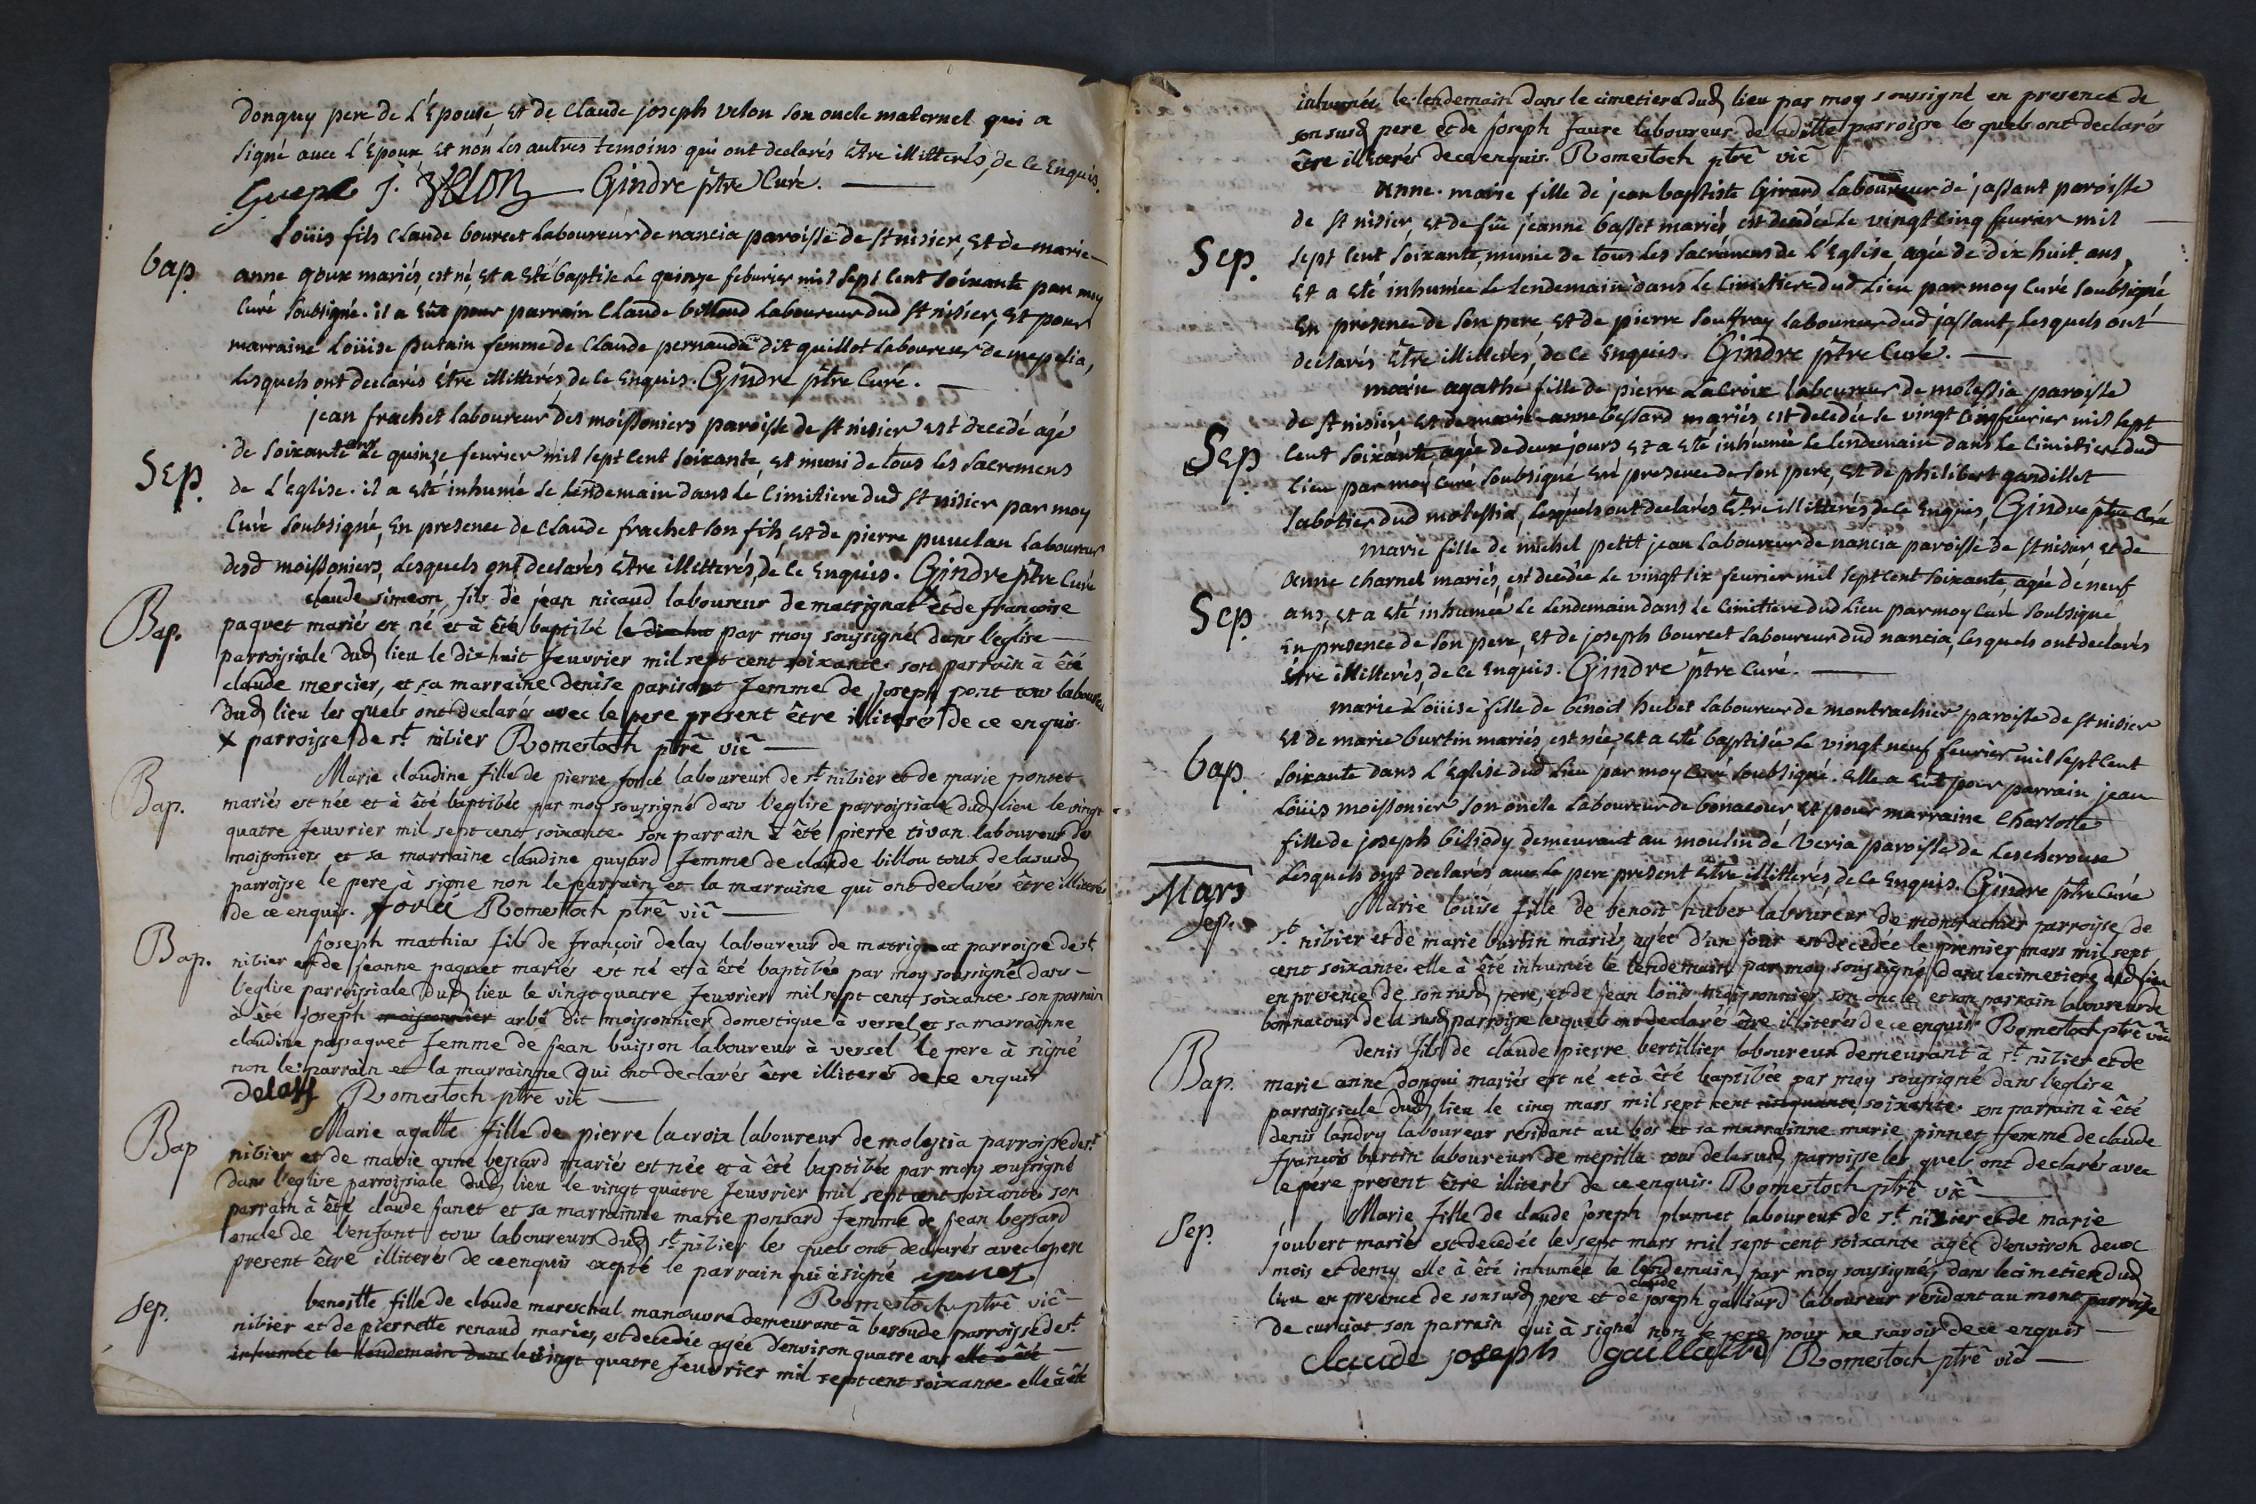 donquy pere de L'Epouse et de claude joseph velon son oncle maternel qui a
signé avec L'Epoux et non les autres témoins qui ont declarés Etre illitterés, de ce Enquis.
J. VELON Gindre ptre Curé.
bap.
Loüis fils Claude bourcet Laboureur de nancia paroisse de st nisier, et de marie
anne goux mariés, est né, et a eté baptise Le quinze feburier mil sept cent soixante par moy
Curé soubsigné. il a eut pour parrain Claude billoud Laboureur dud st nisier, et pour
marraine Loüise putain femme de claude pernaudà dit guillot laboureur de mepelia,
Lesquels ont declarés étre illitterés de ce Enquis. Gindre ptre Curé.
Sep.
jean frachet laboureur des moissoniers paroisse de st nisier est decedé agé
de soixante ans Le quinze feurier mil sept cent soixante, et muni de tous les sacremens
de L'eglise. il a eté inhumé Le Lendemain dans Le Cimitiere dud st nisier par moy
Curé soubsigné, En presence de Claude frachet son fils, et de pierre puvelan Laboureur
desd moissoniers, Lesquels ont declarés Etre illitterés, de ce Enquis. Gindre ptre Curé
Bap.
claude simeon fils de jean nicaud laboureur de matrignat X et de francoise
paquet mariés est né et à été baptisé le dix hu par moy soussigné dans l'eglise
parroissiale dud lieu le dix huit feuvrier mil sept cent soixante. son parrain à été
claude mercier, et sa marraine denise parisant femme de joseph pont tous laboureu
dud lieu les quels ont declarés avec le pere present être illiterés de ce enquis.
X parroisse de st nisier Romestoch ptre vic
Bap.
Marie claudine fille de pierre forcé laboureur de st nisier et de marie poncet
mariés est née et à été baptisée par moy soussigné dans l'eglise parroissiale dud lieu le vingt
quatre feuvrier mil sept cent soixante. son parrain à été pierre tivan laboureur des
moissoniers et sa marraine claudine guyard femme de claude billou tous de la susd
parroisse le pere à signé non le parrain et la marraine qui ont declarés être illiterés
de ce enquis. forcé Romestoch ptre vic
Bap.
joseph mathias fils de françois delay laboureur de matrignat parroisse de st
nisier et de jeanne paquet mariés est né et à été baptisée par moy soussigné dans
l'eglise parroissiale dud lieu le vingt quatre feuvrier mil sept cent soixante. son parrain
à été joseph moissonnier arbé dit moissonnier domestique à versel et sa marrainne
claudine passaquet femme de jean buisson laboureur à versel le pere à signé
non le parrain et la marrainne qui ont declarés être illiterés de ce enquis
Delay Romestoch ptre vic
Bap
Marie agatte fille de pierre lacroix laboureur de molessia parroisse de st
nisier et de marie anne bessard mariés est née et à été baptisée par moy soussigné
dans l'eglise parroissiale dud lieu le vingt quatre feuvrier mil sept cent soixante son
parrain à été claude janet et sa marrainne marie ponsard femme de jean bessard
oncle de l'enfant tous laboureurs dud st nisier les quels ont declarés avec le pere
present être illiterés de ce enquis excpté le parrain qui à signé
Romestoch ptre vic
Sep.
benoitte fille de claude mareschal manœuvre demeurant à beroude parroisse de st
nisier et de pierrette renaud mariés, est decedée agée d'environ quatre ans elle a été
inhumée le lendemain dans le vingt quatre feuvrier mil sept cent soixante elle à été
inhumée le lendemain dans le cimetiere dud lieu par moy soussigné en presence de
son susd pere et de joseph faure laboureur de la ditte parroisse les quels ont declarés
être illiterés de ce enquis. Romestoch ptre vic
Sep.
anne marie fille de jean baptiste Girard Laboureur de jassant paroisse
de st nisier, et de fue jeanne basset mariés est decedée Le vingt cinq feurier mil
sept cent soixante, munie de tous Les sacremens de L'Eglise, agée de dix huit ans,
Et a eté inhumée Le Lendemain dans Le Cimitiere dud Lieu par moy Curé soubsigné
En presence de son pere, et de pierre souffray laboureur dud jassant, Lesquels ont
declarés Etre illitterés, de ce Enquis. Gindre ptre Curé.
Sep
marie agathe fille de pierre Lacroix Laboureur de molessia paroisse
de st nisier et de marie-anne bessard mariés est decedée le vingt cinq feurier mil sept
cent soixante, agée de deux jours et a eté inhumée Le Lendemain dans le Cimitiere dud
Lieu par moy Curé soubsigné En presence de son pere, et de philibert gandillet
sabotier dud molessia, Lesquels ont declarés Etre illitterés de ce Enquis, Gindre ptre Curé
Sep
marie fille de michel petit jean Laboureur de nancia paroisse de st nisier, et de
anne charnel mariés, est decedée Le vingt six feurier mil sept cent soixante, agée de neuf
ans, et a eté inhumée Le Lendemain dans Le Cimitiere dud Lieu par moy Curé soubsigné
En presence de son pere, et de joseph bourcet Laboureur dud nancia, Lesquels ont declarés
être illitterés, de ce Enquis. Gindre ptre Curé.
bap.
marie Loüise fille de benoit hubet Laboureur de montrachier paroisse de st nisier
et de marie burtin mariés, est née, et a eté baptisée Le vingt neuf feurier mil sept cent
soixante dans L'Eglise dud Lieu par moy Curé soubsigné. Elle a eut pour parrain jean
Loüis moissonier son oncle Laboureur de bonacour et pour marraine Charlotte
fille de joseph bihody demeurant au moulin de veria paroisse de Lescheroux
Lesquels ont declarés avec Le pere present Etre illitterés, de ce Enquis. Gindre ptre Curé
Mars
Sep.
Marie loüise fille de benoit hubet laboureur de montrachier parroisse de
st nisier et de marie burtin mariés agée d'un jour est decedée le premier mars mil sept
cent soixante. elle à été inhumée le lendemain par moy soussigné dans le cimetiere dud lieu
en presence de son susd pere, et de jean loüis moissonnier son oncle et son parrain laboureur de
bonnacour de la susd parroisse lesquels ont declarés être illiterés de ce enquis Romestoch ptre vic
Bap.
denis fils de claude pierre bertillier laboureur demeurant à st nisier et de
marie anne donqui mariés est né et à été baptisée par moy soussigné dans l'eglise
parroissiale dud lieu le cinq mars mil sept cent cinquante soixante. son parrain à été
denis landry laboureur residant au bos et sa marrainne marie pinnet femme de claude
françois burtin laboureur de mepilla tous de la susd parroisse les quels ont declarés avec
le pere present être illiterés de ce enquis. Romestoch ptre vic
Sep.
Marie fille de claude joseph plumet laboureur de st nizier et de marie
joubert mariés est decedée le sept mars mil sept cent soixante agée d'environ deux
mois et demy elle à été inhumée le lendemain par moy soussigné dans le cimetiere dud
lieu en presence de son susd pere et de claude joseph galliard laboureur residant au mont parroisse
de curciat son parrain qui à signé non le pere pour ne scavoir de ce enquis
claude joseph gaillard Romestoch ptre vic